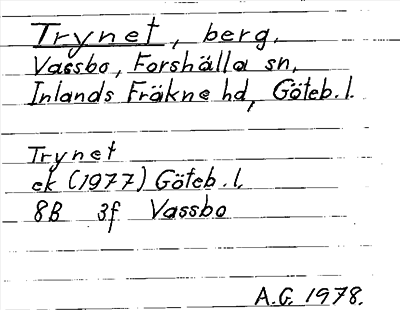 Trynet, berg,
Vassbo, Forshälla sn,
Inlands Fräkne hd, Göteb. l.
Trynet
ek (1977) Göteb. l.
8B 3f Vassbo
A.G. 1978.